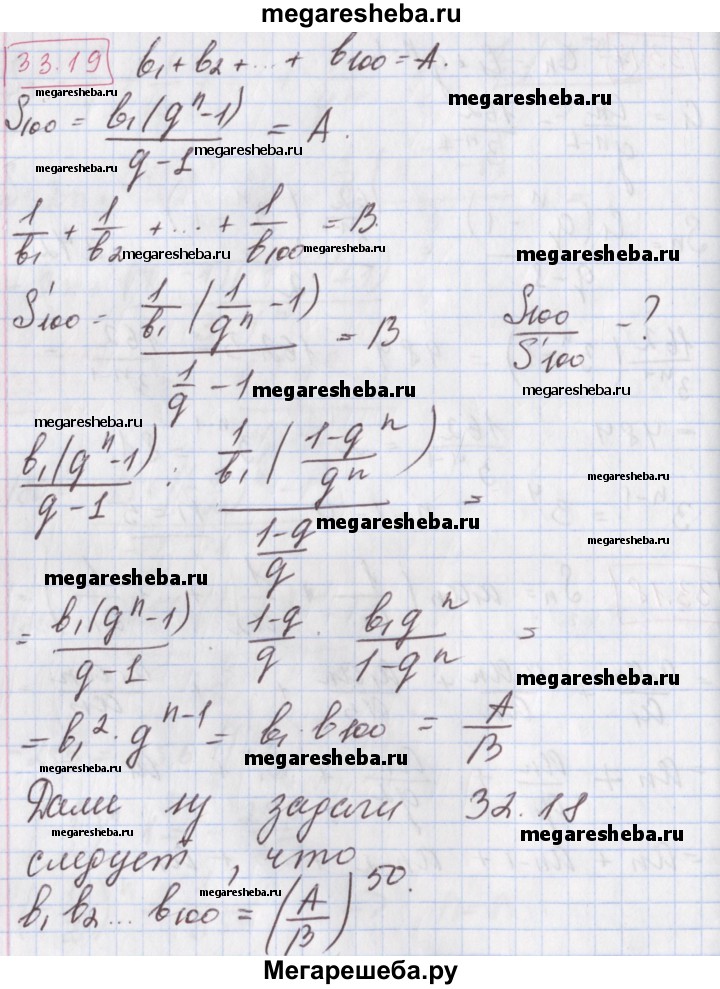 megaresheba.ru
33.19 b₁ + b₂ + ... + b₁₀₀ = A.
megaresheba.ru megaresheba.ru
S₁₀₀ = b₁(qⁿ-1)/(q-1) = A.
megaresheba.ru
1/b₁ + 1/b₂ + ... + 1/b₁₀₀ = B.
megaresheba.ru megaresheba.ru megaresheba.ru
S'₁₀₀ = (1/b₁(1/qⁿ - 1))/(1/q - 1) = B S₁₀₀/S'₁₀₀ - ?
megaresheba.ru megaresheba.ru
megaresheba.ru
b₁(qⁿ-1)/(q-1) : (1/b₁((1-qⁿ)/qⁿ))/((1-q)/q) =
megaresheba.ru
megaresheba.ru
megaresheba.ru
megaresheba.ru
= b₁(qⁿ-1)/(q-1) · (1-q)/q · b₁qⁿ/(1-qⁿ) =
megaresheba.ru
= b₁² · qⁿ⁻¹ = b₁ · b₁₀₀ = A/B
megaresheba.ru megaresheba.ru
Далее из задачи 32.18
megaresheba.ru megaresheba.ru
следует, что
megaresheba.ru
b₁ b₂ ... b₁₀₀ = (A/B)⁵⁰.
Мегарешеба.ру